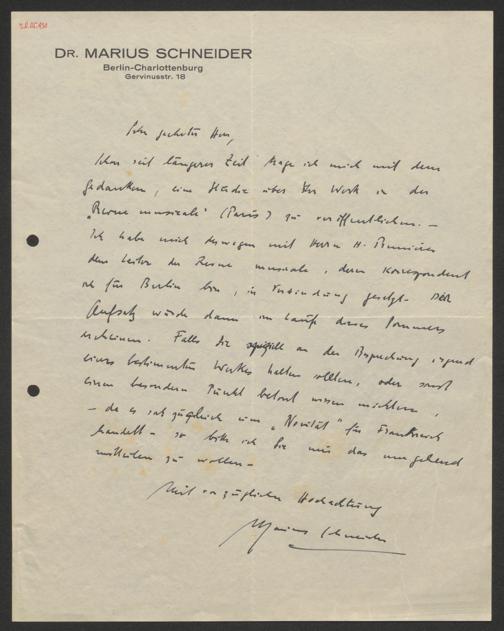 DR. MARIUS SCHNEIDER
Berlin-Charlottenburg
Gervinusstr. 18
Sehr geehrter Herr,
Schon seit längerer Zeit trage ich mich mit dem
Gedanken, eine Studie über Ihr Werk in der
„Revue musicale" (Paris) zu veröffentlichen. —
Ich habe mich deswegen mit Herrn H. Prunières
dem Leiter der Revue musicale, deren Korrespondent
ich für Berlin bin, in Verbindung gesetzt. Der
Aufsatz würde dann im Laufe dieses Sommers
erscheinen. Falls Sie speziell an der Besprechung irgend
eines bestimmten Werkes halten sollten, oder sonst
einen besondern Punkt betont wissen möchten,
— da es sich zugleich um „Novität" für Frankreich
handelt — so bitte ich Sie mir das umgehend
mitteilen zu wollen —
Mit vorzüglicher Hochachtung
Marius Schneider